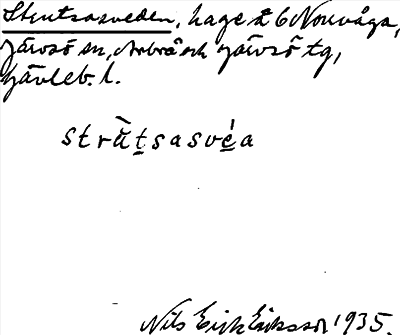 Strutsasveden, hage å 6 Norrvåga,
Järvsö sn, Arbrå och Järvsö tg,
Gävleb. l.
strʉ̀t̠sasvéa
Nils Erik Eriksson 1935.